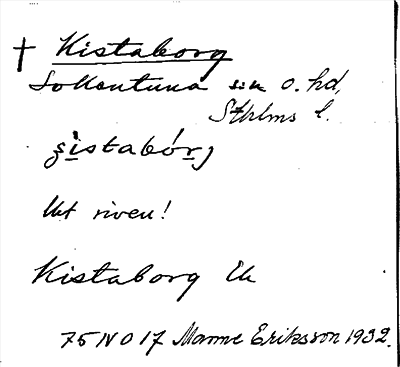 † Kistaborg
Sollentuna sn o. hd,
Sthlms l.
ʂistabórj
Utriven!
Kistaborg Ek
75 IV O 17 Manne Eriksson 1932.